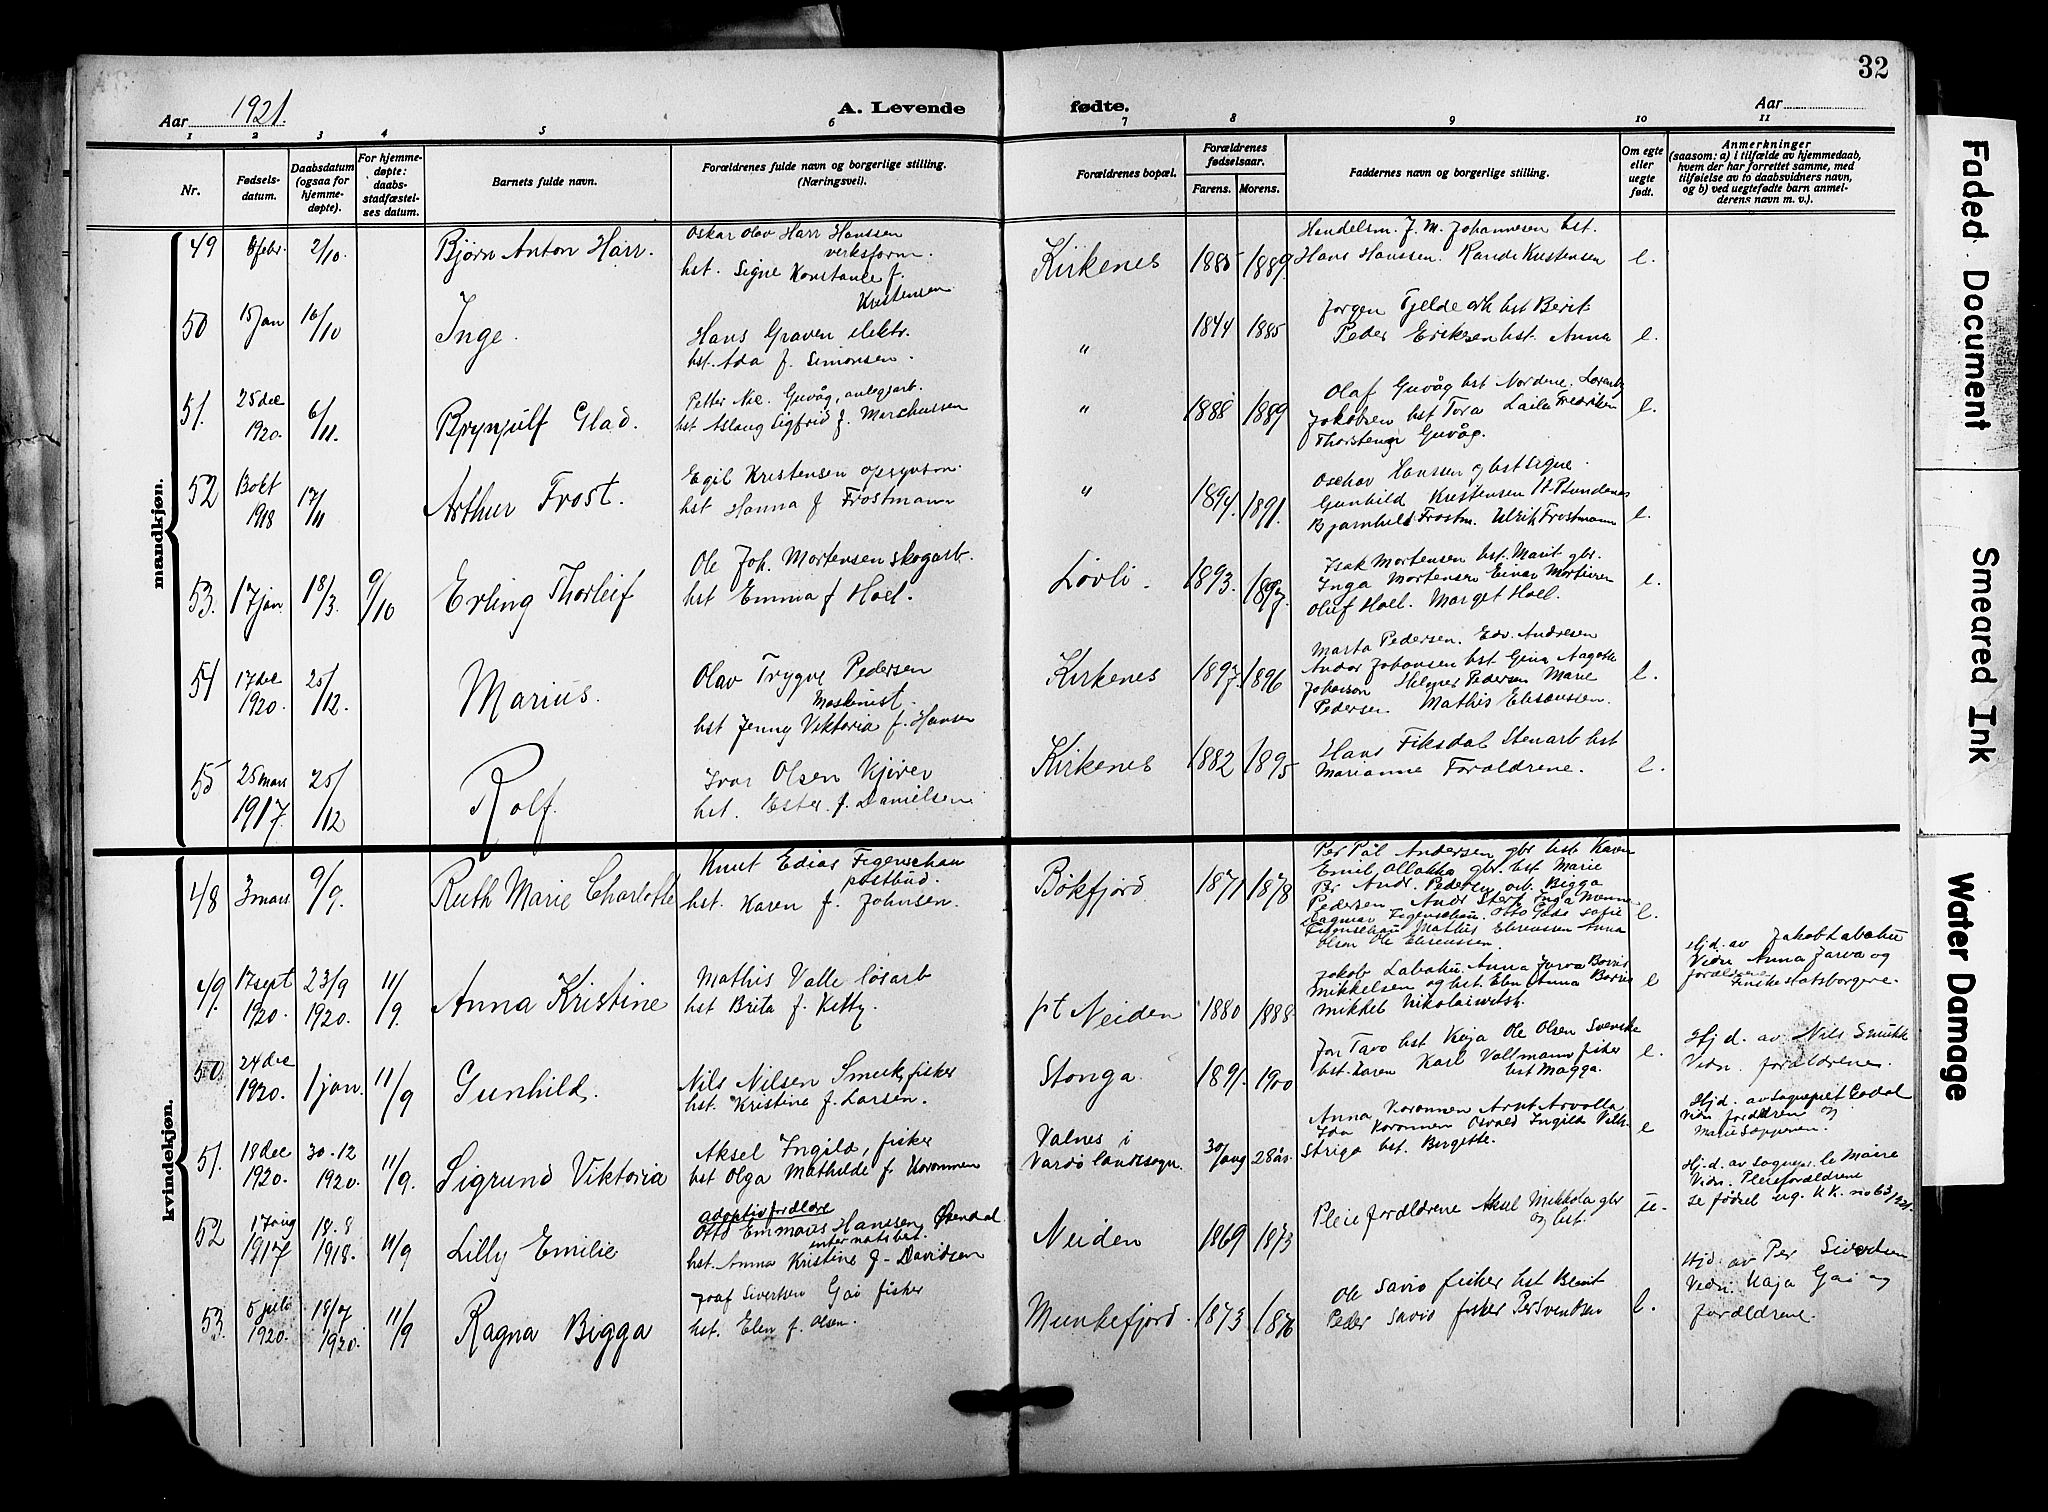 32
Aar 1921.
A. Levende fødte.
Aar
1 2 3 4 5 6 7 8 9 10 11
Nr.
Fødsels-
datum.
Daabsdatum
(ogsaa for
hjemme-
døpte).
For hjemme-
døpte:
daabs-
stadfæstel-
ses datum.
Barnets fulde navn.
Forældrenes fulde navn og borgerlige stilling.
(Næringsvei).
Forældrenes bopæl.
Forældrenes
fødselsaar.
Farens. Morens.
Faddernes navn og borgerlige stilling.
Om egte
eller
uegte
født.
Anmerkninger
(saasom: a) i tilfælde av hjemmedaab,
hvem der har forrettet samme, med
tilføielse av to daabsvidners navn,
og b) ved uegtefødte barn anmel-
derens navn m. v.).
mandkjøn.
49 8 febr. 2/10 Bjørn Anton Harr.
Oskar Olav Harr Hanssen
verksform.
hst. Signe Konstanse f.
Kristensen
Kirkenes 1885 1889
Handelsm. J. M. Johannesen hst.
Hans Hanssen. Randi Kristensen
e.
50 15 jan 16/10 Inge.
Hans Graven elektr.
hst. Ada f. Simonsen.
" 1844 1885
Jørgen Tjelde arb hst Berit
Peder Eriksen hst. Anna
e.
51. 25 dec 1920. 6/11. Brynjulf Glad.
Petter Nic. Guvåg, anlegsarb.
hst Aslaug Sigfrid f. Marchussen
" 1888 1889
Olaf Guvåg hst Nordene. Lorentz
Jakobsen hst Tora Laila Fredriksen
Thorstensen Guvåg.
e.
52 3 okt 1918 17/11 Arthur Frost.
Egil Kristensen opsynsm.
hst Hanna f Frostmann
" 1894. 1891.
Oschar Hanssen og hst Signe
Gunhild Kristensen
Bjarnhild Frostm. Ulrik Frostmann
e.
53. 17 jan. 18/3. 9/10 Erling Thorleif
Ole Joh. Mortensen skogarb.
hst Emma f Hoel.
Løvli. 1893. 1897.
Isak Mortensen hst. Marit gbr.
Inga Mortensen Einar Mortensen
Oluf Hoel. Marget Hoel.
e.
54 17 dec 1920. 25/12. Marius.
Olav Trygve Pedersen
Maskinist.
hst Jenny Viktoria f. Hansen
Kirkenes 1897. 1896
Marta Pedersen. Edv. Andresen
Andor Johansen hst Gina Aagott
Johanson Helmer Pedersen Marie
Pedersen. Mathis Eliseussen.
e.
55 25 mars 1917. 25/12 Rolf.
Ivar Olsen Kjirer
hst. Ester f. Danielsen
Kirkenes 1882 1895
Hans Fiksdal Stenarb hst
Marianne Forældrene.
e.
kvindekjøn.
48 3 mars 9/9. Ruth Marie Charlotte
Knut Edias Figenschau
postbud.
hst. Karen f. Johnsen.
Bøkfjord 1871 1878
Per Pål Andersen gbr hst Karen
Emil Ollakka gbr. hst Marie
Per Andr. Pedersen arb. Bigga
Pedersen Andr Sterk Inga Monne
Ragnar Figenschau. Otto Gade Sofie
Figenschau Mathis Ellensen Anna
Olsen Ole Ellenssen.
e.
49. 17 sept 1920. 23/9 1920. 11/9. Anna Kristine
Mathis Valle løsarb
hst Brita f. Kitty.
pt Neiden 1880 1888
Jakob Labahu. Anna Jarva Boris
Mikkelsen og hst. Elen Anna Boris
Mikkel Nikolaiwitsh.
e
Hjd. av Jakob Labahu
Vidn Anna Jarva og
forældrene
Finske statsborgere.
50. 24 dec 1920. 1 jan. 11/9 Gunhild.
Nils Nilsen Smuk, fisker
hst. Kristine f. Larsen.
Stonga. 1891. 1900
Jon Tavo hst Keija Ole Olsen Svenske
hst. Karen Karl Valtmann fisker
hst Magga.
e.
Hjd. av Nils Smukk
Vidn. forældrene.
51. 18 dec 1920. 30-12 1920. 11/9. Sigrund Viktoria
Aksel Ingild, fisker
hst Olga Mathilde f. Koronnen
Valnes i
Vardø landsogn. 30/aug 28 år.
Anna Koronnen Arnt Arvolla
Ida Koronnen Osvald Ingild Vilh-
Striga hst. Bergette.
e
Hjd. av Sogneprest Eedal
Vidn forældrene og
Marie Seppenen.
52 17 aug 1917 18-8 1918. 11/9 Lilly Emilie
adoptivforældre
Otto Emmaus Hanssen Øvendal
internatsbest.
hst. Anna Kristine f. Davidsen
Neiden 1869 1873
Pleieforældrene Aksel Mikkola gbr
og hst.
u.
Hjd. av Sognepr. le Maire
Vidn. Pleieforældrene
se fødsel reg. KK. no 63/1921.
53. 5 juli 1920. 18/07 1920. 11/9 Ragna Bigga
Joaf Sivertsen Gai fisker
hst. Elen f. Olsen.
Munkefjord. 1873 1876
Ole Savio fisker hst Berit
Peder Savio fisker Per Svendsen
e.
Hjd. av Per Sivertsen
Vidn. Kaja Gai og
forældrene.
Faded Document
Smeared Ink
Water Damage